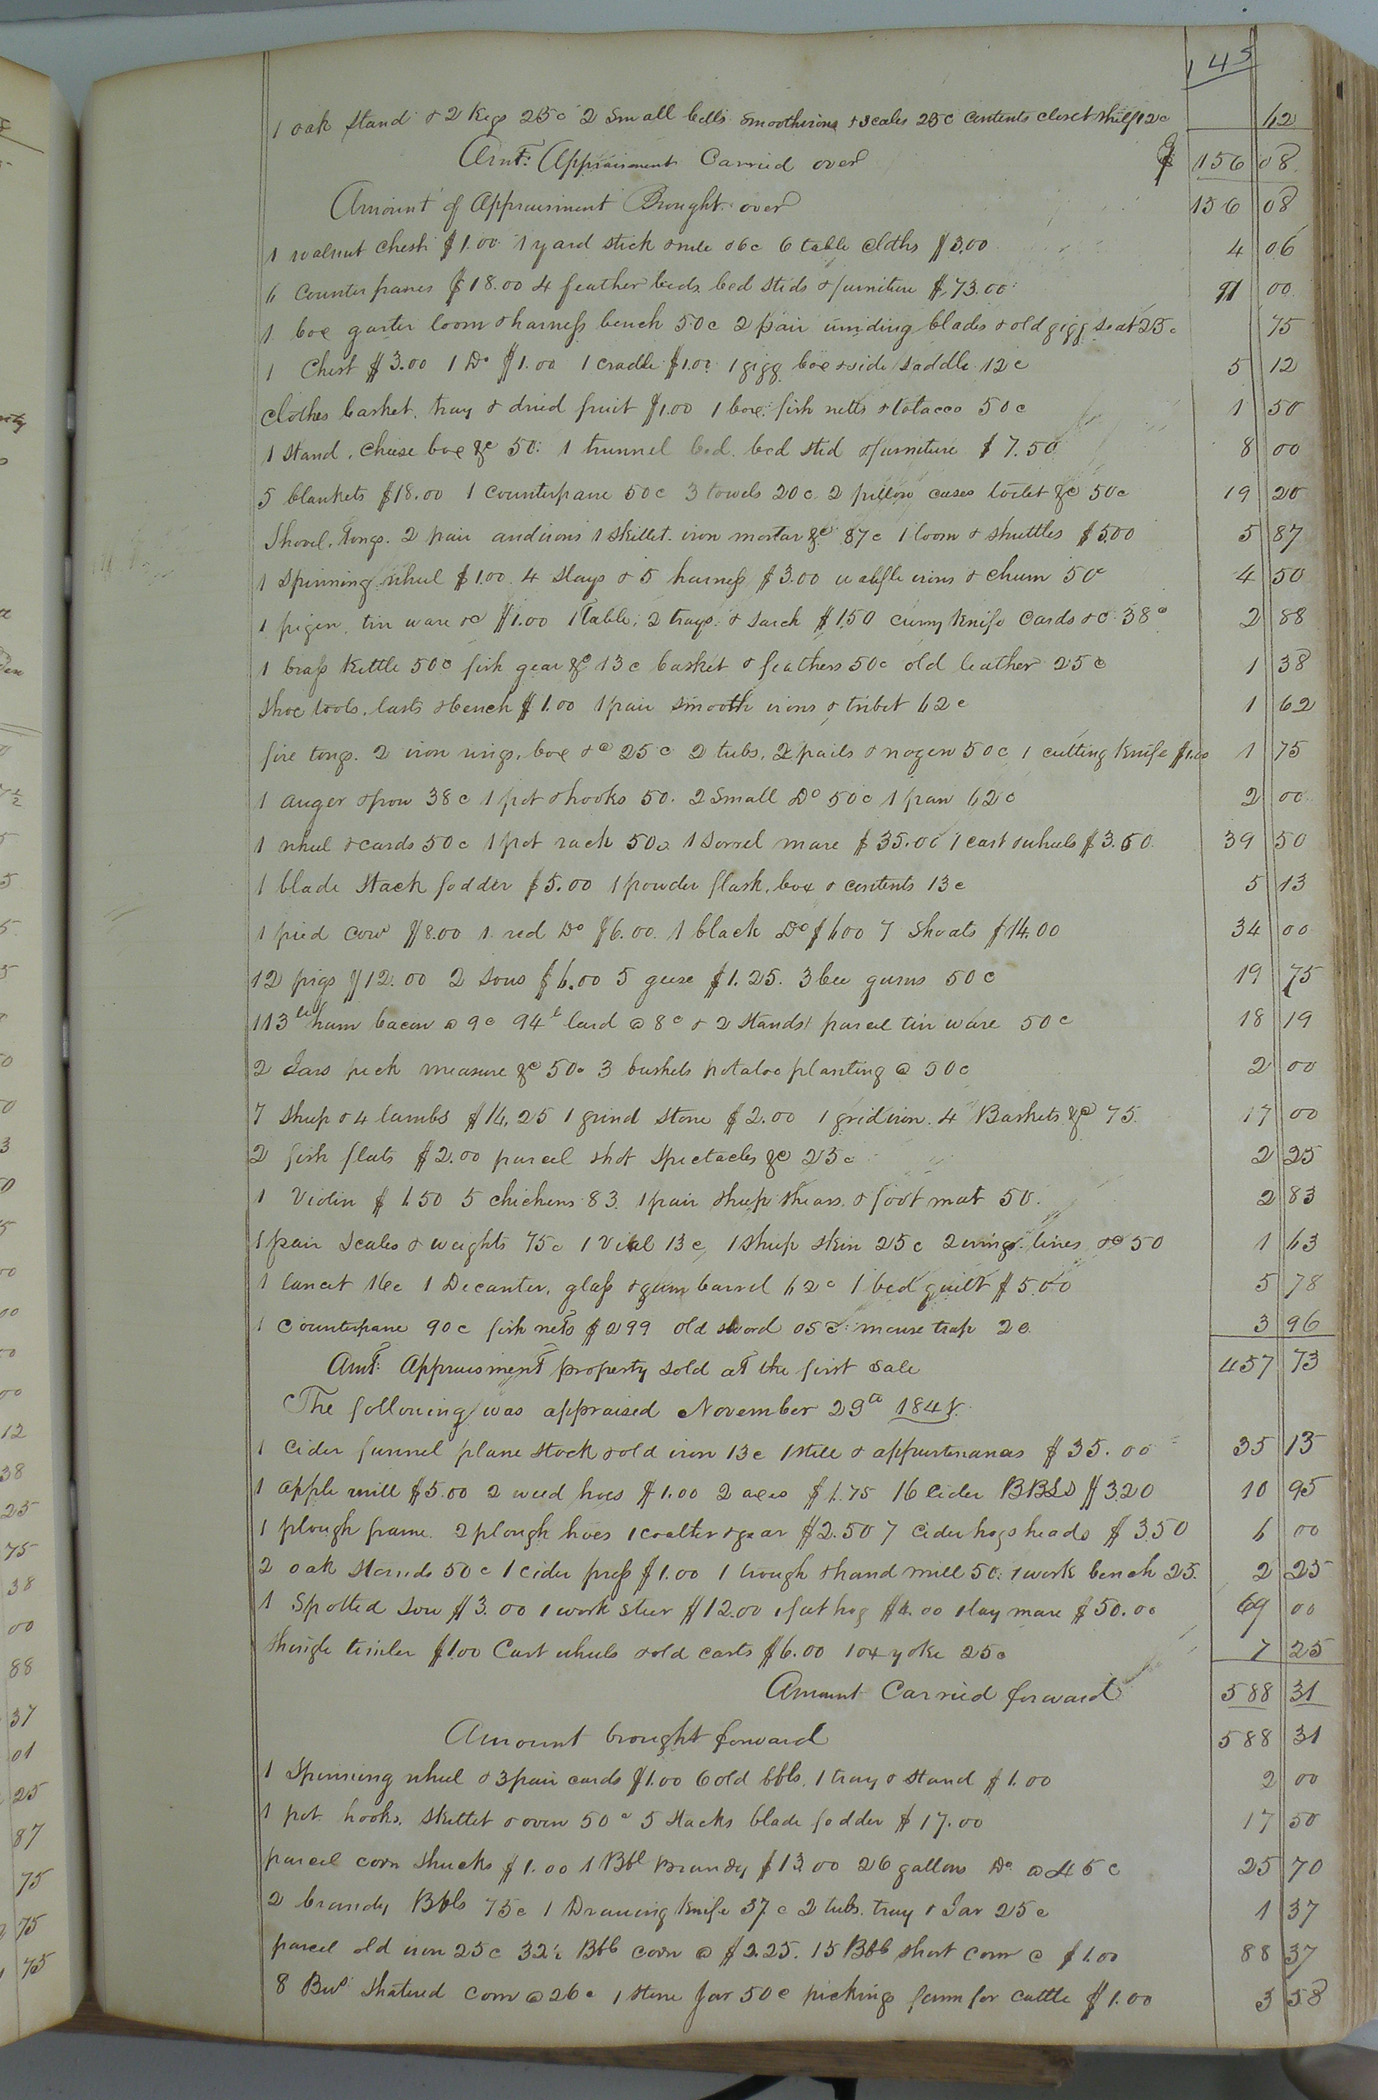 145
1 oak stand & 2 Kegs 25c 2 small bells smoothirons & scales 25c contents closet shelf 12c 62
Amt: Appraisment Carried over $ 156 08
Amount of Appraisment Brought over 156 08
1 walnut chest $1.00 1 yard stick & rule 06c 6 table cloths $3.00 4 06
6 Counterpanes $18.00 4 feather beds, bed steds & furniture $73.00 91 00
1 box garter loom & harness bench 50c 2 pair winding blades & old gigg seat 25c 75
1 Chest $3.00 1 Do $1.00 1 cradle $1.00 1 gigg box & side saddle 12c 5 12
Clothes basket, tray & dried fruit $1.00 1 box fish netts & tobacco 50c 1 50
1 Stand, cheese box &c 50 1 trunnel bed, bed sted & furniture $7.50 8 00
5 blankets $18.00 1 counterpane 50c 3 towels 20c 2 pillow cases toilet &c 50c 19 20
Shovel, tongs, 2 pair andirons 1 skillet, iron mortar &c 87c 1 loom & shuttles $5.00 5 87
1 Spinning wheel $1.00 4 slays & 5 harness $3.00 waffle irons & churn 50c 4 50
1 pigin, tin ware &c $1.00 1 table, 2 trays & sarch $1.50 curry knife cards &c 38c 2 88
1 brass kettle 50c fish gear &c 13c basket & feathers 50c old leather 25c 1 38
Shoe tools, lasts & bench $1.00 1 pair smooth irons & tribet 62c 1 62
fire tongs, 2 iron rings, box &c 25c 2 tubs, 2 pails & nogen 50c 1 cutting knife $1.00 1 75
1 auger & frow 38c 1 pot & hooks 50. 2 small Do 50c 1 pan 62c 2 00
1 wheel & cards 50c 1 pot rack 50c 1 Sorrel mare $35.00 1 cart & wheels $3.50 39 50
1 blade stack fodder $5.00 1 powder flask, box & contents 13c 5 13
1 pied cow $8.00 1 red Do $6.00 1 black Do $6.00 7 Shoats $14.00 34 00
12 pigs $12.00 2 sows $6.00 5 geese $1.25. 3 bee gums 50c 19 75
113 lb ham bacon @ 9c 94 lb lard @ 8c & 2 stands parcel tin ware 50c 18 19
2 Jars peck measure &c 50c 3 bushels potatoe planting @ 50c 2 00
7 sheep & 4 lambs $14.25 1 grind stone $2.00 1 gridiron 4 Baskets &c 75 17 00
2 fish flats $2.00 parcel shot Spectacles &c 25c 2 25
1 Violin $1.50 5 chickens 83. 1 pair sheep shears & foot mat 50. 2 83
1 pair Scales & weights 75c 1 Vial 13c, 1 sheep skin 25c 2 lines &c 50 1 63
1 lancet 16c 1 Decanter, glass & gum barrel 62c 1 bed quilt $5.00 5 78
1 Counterpane 90c fish nets $2.99 old sword 05c mouse trap 2c 3 96
Amt: Appraisment property sold at the first sale 457 73
The following was appraised November 29th 184
1 Cider funnel plane stock & old iron 13c 1 still & appurtenances $35.00 35 13
1 apple mill $5.00 2 weed hoes $1.00 2 axes $1.75 16 Cider BBLS $3.20 10 95
1 plough frame 2 plough hoes 1 coalter & gear $2.50 7 Cider hogsheads $3.50 6 00
2 oak Stands 50c 1 cider press $1.00 1 trough & hand mill 50. 1 work bench 25. 2 25
1 Spotted sow $3.00 1 work steer $12.00 1 fat hog $4.00 1 bay mare $50.00 69 00
Shingle timber $1.00 Cart wheels & old carts $6.00 1 ox yoke 25c 7 25
Amount Carried forward 588 31
Amount brought forward 588 31
1 Spinning wheel & 3 pair cards $1.00 6 old bbls, 1 tray & stand $1.00 2 00
1 pot hooks, skillet & oven 50c 5 stacks blade fodder $17.00 17 50
parcel corn shucks $1.00 1 Bbl Brandy $13.00 26 gallons Do @ 45c 25 70
2 brandy Bbls 75c 1 Drawing knife 37c 2 tubs, tray & Jar 25c 1 37
parcel old iron 25c 32½ Bbb corn @ $2.25. 15 Bbb short corn @ $1.00 88 37
8 Bus shatered corn @ 26c 1 stone Jar 50c pickings farm for cattle $1.00 3 58